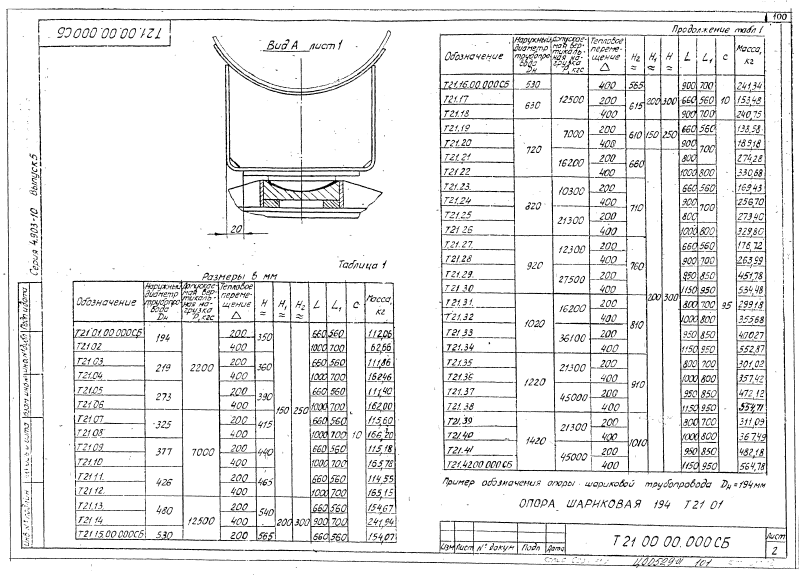 100
Т21.00.00.000СБ
Вид А лист 1
20
Серия 4.903-10 Выпуск 5
Таблица 1
Размеры в мм
Обозначение | Наружный диаметр трубопровода Dн | Допускаемая вертикальная нагрузка P, кгс | Тепловое перемещение Δ | H ≈ | H₁ ≈ | H₂ ≈ | L | L₁ | c | Масса, кг
Т21.01.00.000СБ | 194 | 2200 | 200 | 350 | 150 | 250 | 660 | 560 | 10 | 112,06
Т21.02 | 400 | 1000 | 700
Т21.03 | 219 | 200 | 360 | 660 | 560 | 111,86
Т21.04 | 400 | 1000 | 700
Т21.05 | 273 | 7000 | 200 | 390 | 660 | 560 | 111,40
Т21.06 | 400 | 1000 | 700 | 162,00
Т21.07 | 325 | 200 | 415 | 660 | 560 | 115,60
Т21.08 | 400 | 1000 | 700 | 166,20
Т21.09 | 377 | 200 | 440 | 660 | 560 | 115,18
Т21.10 | 400 | 1000 | 700 | 165,78
Т21.11 | 426 | 200 | 465 | 660 | 560 | 114,55
Т21.12 | 400 | 1000 | 700 | 165,15
Т21.13 | 480 | 12500 | 200 | 540 | 200 | 300 | 660 | 560 | 154,67
Т21.14 | 400 | 900 | 700 | 241,94
Т21.15.00.000СБ | 530 | 200 | 565 | 660 | 560 | 154,07
Продолжение табл. 1
Обозначение | Наружный диаметр трубопровода Dн | Допускаемая вертикальная нагрузка P, кгс | Тепловое перемещение Δ | H₂ ≈ | H₁ ≈ | H ≈ | L | L₁ | c | Масса, кг
Т21.16.00.000СБ | 530 | 12500 | 400 | 565 | 200 | 300 | 900 | 700 | 10 | 241,34
Т21.17 | 630 | 200 | 615 | 660 | 560 | 153,48
Т21.18 | 400 | 900 | 700 | 240,75
Т21.19 | 720 | 7000 | 200 | 610 | 150 | 250 | 660 | 560 | 138,58
Т21.20 | 400 | 900 | 700 | 189,18
Т21.21 | 16200 | 200 | 660 | 200 | 300 | 800 | 95 | 274,28
Т21.22 | 400 | 1000 | 800 | 330,68
Т21.23 | 820 | 10300 | 200 | 710 | 660 | 560 | 169,43
Т21.24 | 400 | 900 | 700 | 256,70
Т21.25 | 21300 | 200 | 800 | 273,40
Т21.26 | 400 | 1000 | 800 | 329,80
Т21.27 | 920 | 12300 | 200 | 760 | 660 | 560 | 176,72
Т21.28 | 400 | 900 | 700 | 263,99
Т21.29 | 27500 | 200 | 950 | 850 | 451,78
Т21.30 | 400 | 1150 | 950 | 534,48
Т21.31 | 1020 | 16200 | 200 | 810 | 800 | 700 | 299,18
Т21.32 | 400 | 1000 | 800 | 355,68
Т21.33 | 36100 | 200 | 950 | 850
Т21.34 | 400 | 1150 | 950 | 552,87
Т21.35 | 1220 | 21300 | 200 | 910 | 800 | 700 | 301,02
Т21.36 | 400 | 1000 | 800 | 357,42
Т21.37 | 45000 | 200 | 950 | 850 | 472,12
Т21.38 | 400 | 1150 | 950 | 554,71
Т21.39 | 1420 | 21300 | 200 | 1010 | 800 | 700 | 311,09
Т21.40 | 400 | 1000 | 800 | 367,49
Т21.41 | 45000 | 200 | 950 | 850 | 482,18
Т21.42.00.000СБ | 400 | 1150 | 950 | 564,78
Пример обозначения опоры шариковой трубопровода Dн=194мм
ОПОРА ШАРИКОВАЯ 194 Т21.01
Изм Лист N° докум Подп Дата
Т 21 00.00.000 СБ
Лист
2
101